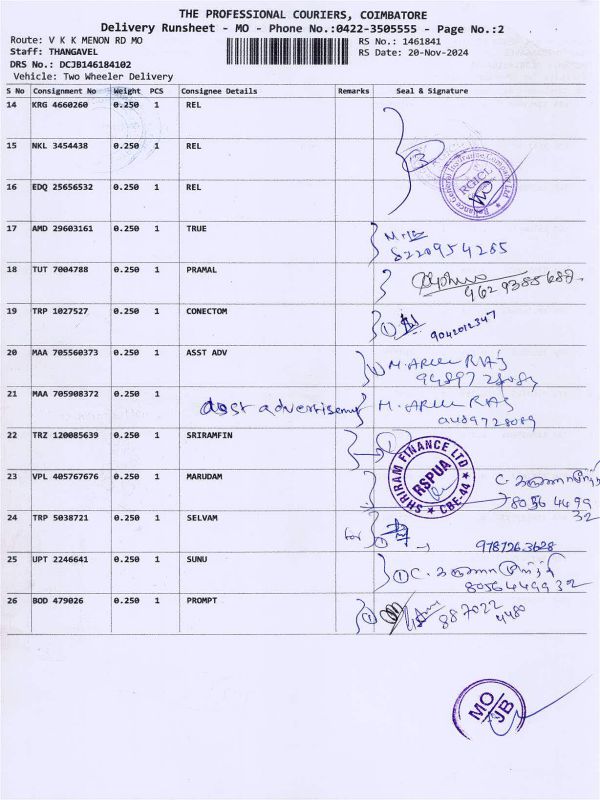 THE PROFESSIONAL COURIERS, COIMBATORE
Delivery Runsheet - MO - Phone No.:0422-3505555 - Page No.:2
Route: V K K MENON RD MO
RS No.: 1461841
Staff: THANGAVEL
RS Date: 20-Nov-2024
DRS No.: DCJB146184102
Vehicle: Two Wheeler Delivery
S No Consignment No Weight PCS Consignee Details Remarks Seal & Signature
14 KRG 4660260 0.250 1 REL
15 NKL 3454438 0.250 1 REL
3
Reliance General Insurance Company Ltd
RGICL
16 EDQ 25656532 0.250 1 REL
17 AMD 29603161 0.250 1 TRUE
8220954285
18 TUT 7004788 0.250 1 PRAMAL
19 TRP 1027527 0.250 1 CONECTOM
1
9042012347
20 MAA 705560373 0.250 1 ASST ADV
M. ARUL RAJ
9489728089
21 MAA 705908372 0.250 1
asst advertising
M. ARUL RAJ
9489728089
22 TRZ 120085639 0.250 1 SRIRAMFIN
SHRIRAM FINANCE LTD
RSPUA
CBE-44
23 VPL 405767676 0.250 1 MARUDAM
C.
8056 4499
32
24 TRP 5038721 0.250 1 SELVAM
for
978726 3628
25 UPT 2246641 0.250 1 SUNU
1 C.
8056449932
26 BOD 479026 0.250 1 PROMPT
1
887022
4480
MO
JB